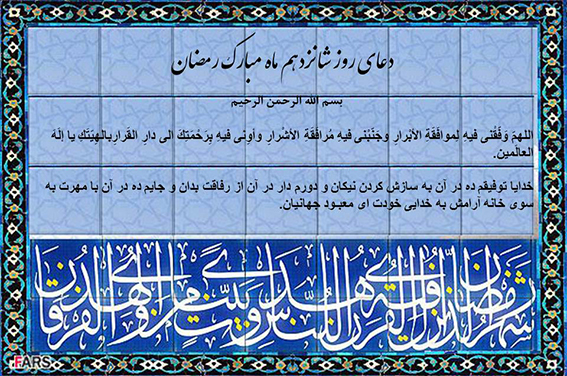 دعای روز شانزدهم ماه مبارک رمضان
بسم الله الرحمن الرحیم
اللهمّ وَفّقْنی فیهِ لِموافَقَةِ الأبْرارِ وجَنّبْنی فیهِ مُرافَقَةِ الأشْرارِ وأوِنی فیهِ بِرَحْمَتِكَ الی دارِ القَرارِبالهِیّتَكِ یا إلَهَ
العالَمین.
خدایا توفیقم ده در آن به سازش کردن نیکان و دورم دار در آن از رفاقت بدان و جایم ده در آن با مهرت به
سوی خانه آرامش به خدایی خودت ای معبود جهانیان.
شهر رمضان الذی انزل فیه القرآن هدی للناس و بینت من الهدی و الفرقان
FARS